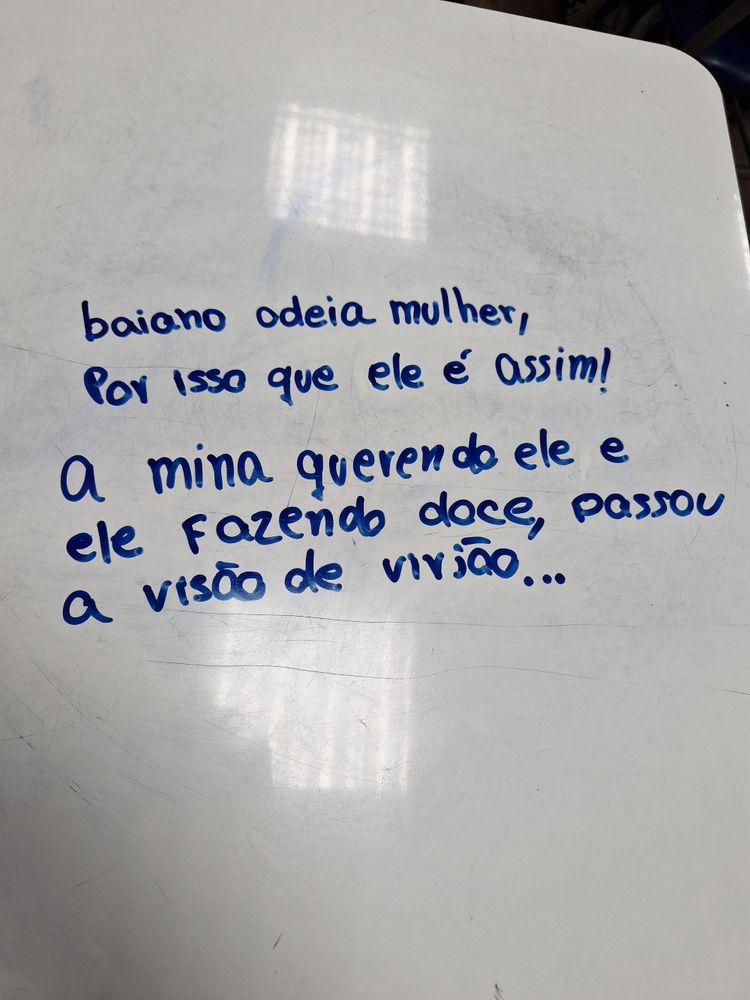 baiano odeia mulher,
Por isso que ele é assim!
a mina querendo ele e
ele Fazendo doce, passou
a visão de virjão...